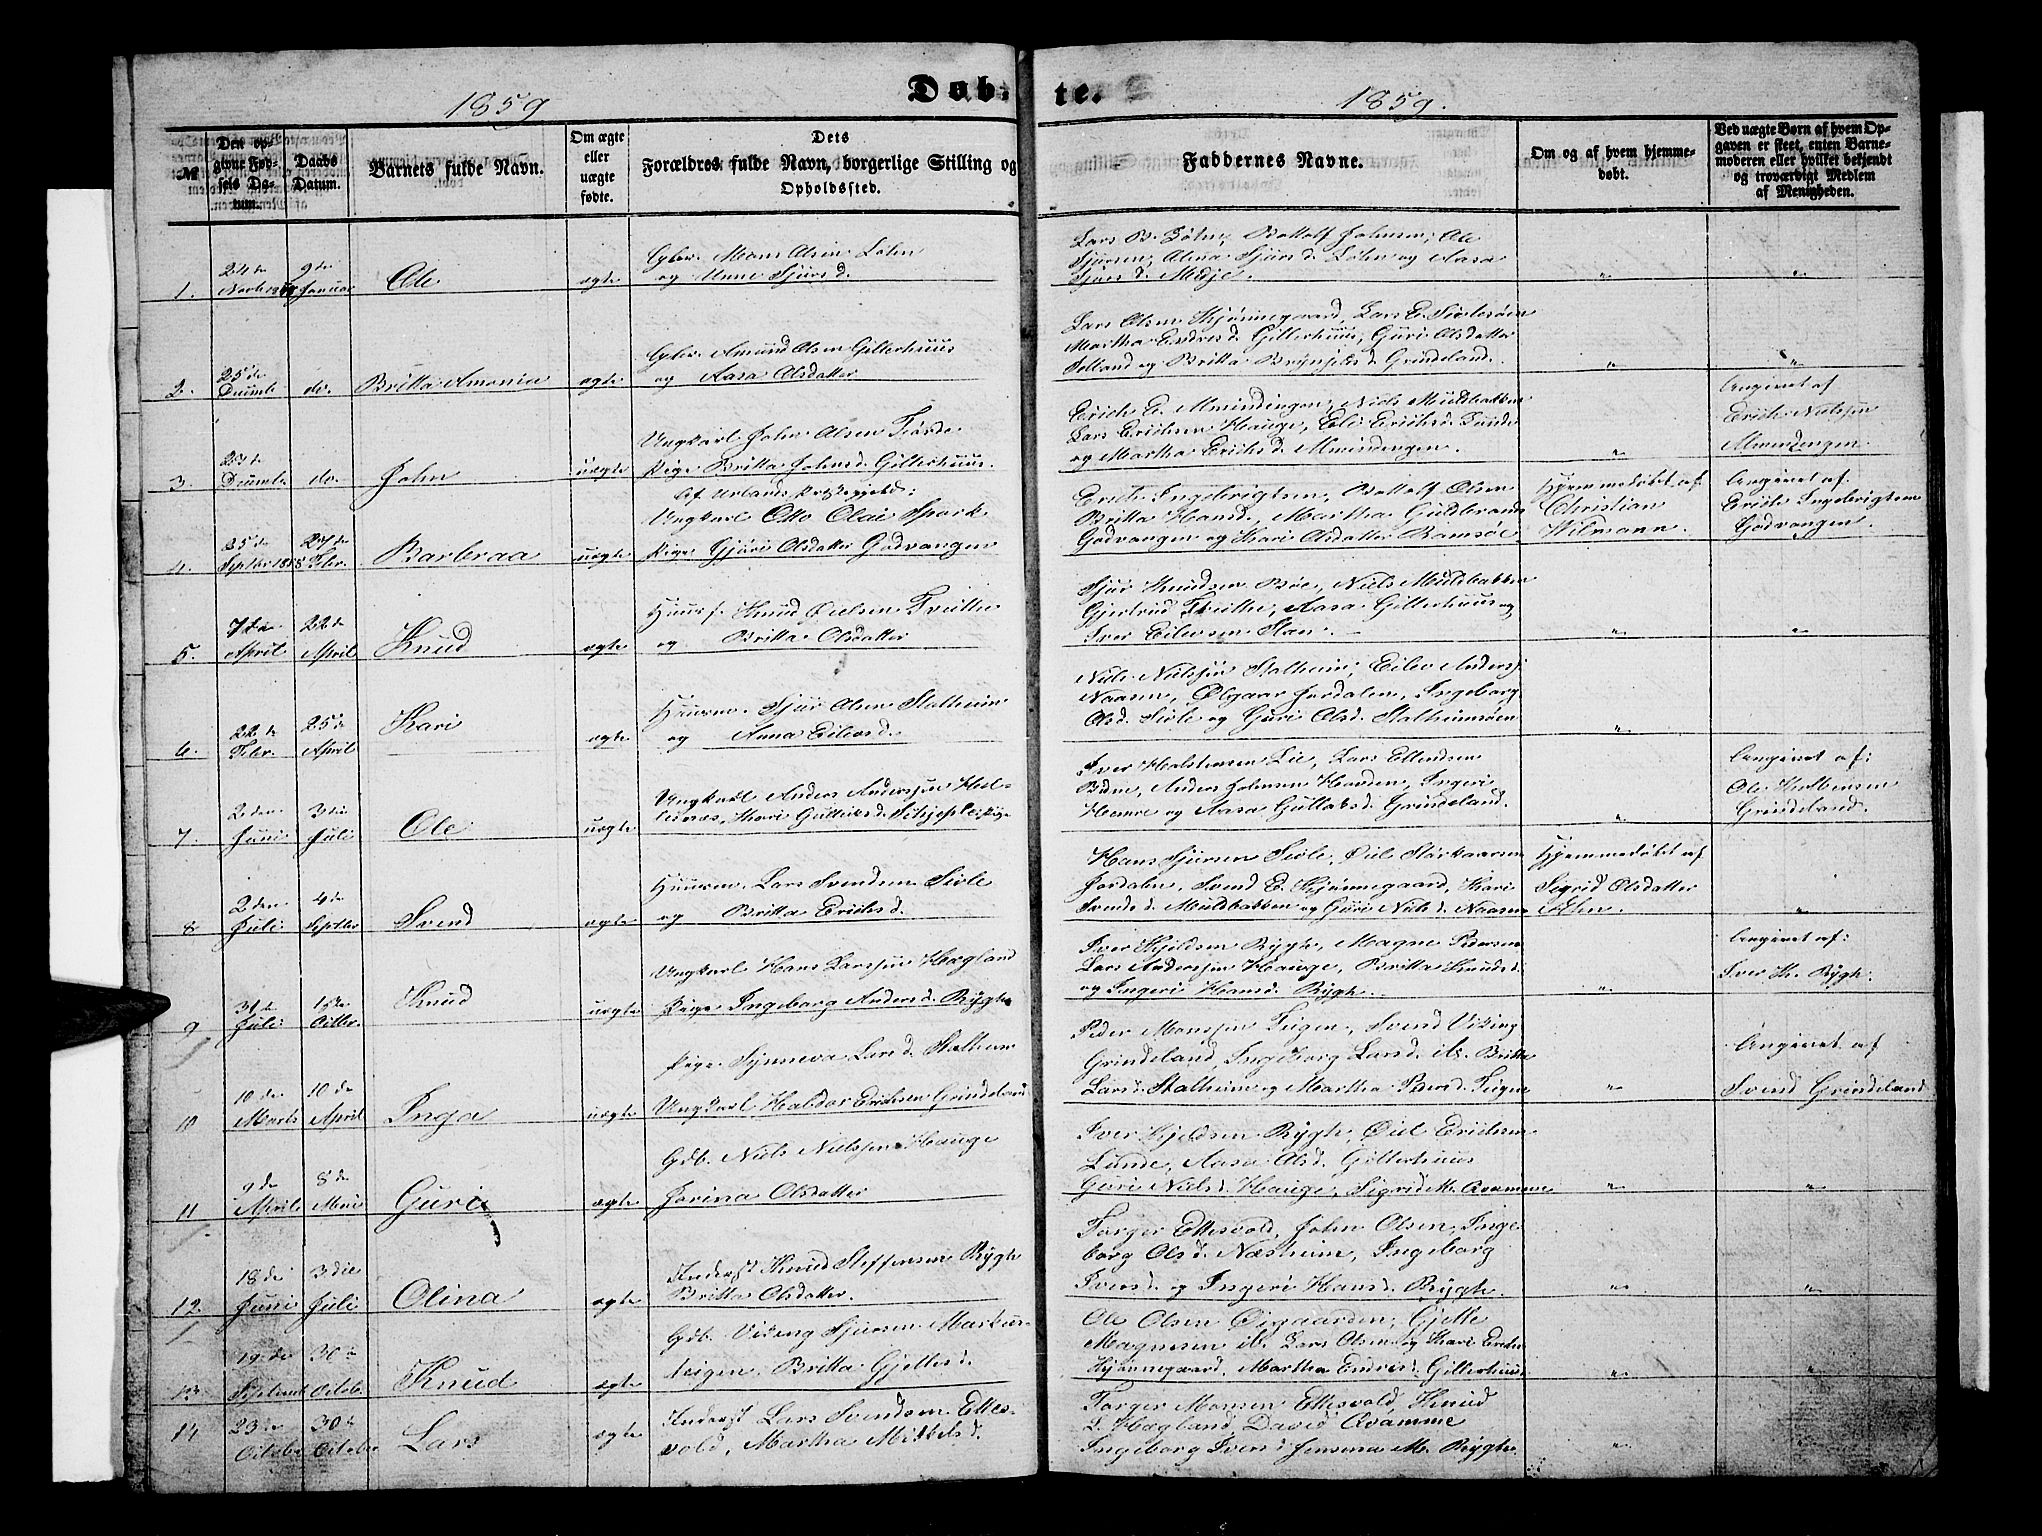 Døb- te.
1859 1859.
№
Den op-
givne Fød-
sels Da-
tum.
Daabs
Datum.
Barnets fulde Navn.
Om ægte
eller
uægte
fødte.
Dets
Forældres fulde Navn, borgerlige Stilling og
Opholdssted.
Faddernes Navne.
Om og af hvem hjemme-
døbt.
Ved uægte Børn af hvem Op-
gaven er skeet, enten Barne-
moderen eller hvilket bekjendt
og troværdigt Medlem
af Menigheden.
1. 24de 9de Januar Ole ægte
Mons Olsen Løhn
og Anne Sjursd.
Lars B. Løhn, Bottolf Johnsen, Ole
Sjursen, Anna Sjursd. Løhn og Aasa
Sjursd. Midje.
2. 25de Decemb. do. Britta Amonia ægte
Amund Olsen Gillerhuus
og Aasa Olsdatter
Lars Olsen Hjønnegaard, Lars E. Sivlesøen
Martha Endresd. Gillerhuus, Guri Olsdatter
og Britta Brynjelsd. Grindeland.
3. 27de Decemb. do. John uægte
Ungkarl John Olsen
Pige Britta Johnsd. Gillerhuus.
Erich E. Mmindingen, Niels Muldbakken
Lars Erichsen Hauge, Eli Erichsd. Lunde
og Martha Erichsd. Mmindengen.
Angivet af
Erich Nielssen
Mmindengen
4. 25de Septbr 1858 27de Febr. Barbraa uægte
Af Urlands Præstegjeld:
Ungkarl Otto Olai Spork
Pige Gjøri Olsdatter Godvangen
Erich Ingebrigtsen, Bottolf Olsen
Britta Hansd., Martha Guldbrands
Godvangen og Kari Olsdatter Ramsøe
Hjemmedøbt af
Christian
Wilmann.
Angivet af
Erich Ingebrigtsen
Godvangen.
5. 7de April 22de April Knud ægte
Huusf. Knud Oielsen Tvinthe
og Britta Olsdatter
Sjur Knudsen Bøe, Niels Muldbakken
Gjertrud Tvinthe, Aasa Gillerhuus og
Iver Eilevsen Slæn.
6. 22de Febr. 25de April Kari ægte
Huusm. Sjur Olsen Stalheim
og Anna Eilevsd.
Niels Nielssen Stalheim, Eilev Andersj.
Naasen, Olgaar Jordalen, Ingeborg
Olsd. Sivle og Guri Olsd. Stalheimsøen
7. 2den Juni 3die Juli Ole uægte
Ungkarl Anders Anderssen Hel-
Kari Gulleiksd. Pige
Iver Halstensen Lie, Lars Ellendsen
Anders Johnsen Ingeri
og Aasa Gullaksd. Grindeland.
Angivet af:
Ole
Grindeland.
8 2den Juli 4de Septbr Svend ægte
Huusm. Lars Svendsen Sivle
og Britta Erichsd.
Hans Sjursen Sivle, Oiel Storkaarsen
Jordalen, Svend E. Hjønnegaard, Kari
Svendsd. Muldbakken og Guri Nielsd. Naasen
Hjemmedøbt af
Sigrid Olsdatter
9 31de Juli Octbr. Knud uægte
Ungkarl Hans Larssen Hagland
Pige Ingeborg Andersd. Rygh
Iver Kjeldsen Rygh, Magne Pedersen
Lars Anderssen Hauge, Britta Knudsd.
og Ingeri Hansd. Rygh.
Angivet af:
Iver K. Rygh.
10 10de Marts 10de April Inga uægte
Pige Synneva Larsd. Stalheim
Ungkarl Haldor Erichsen Grindeland
Peder Monssen Teigen, Svend Viking
Grindeland, Ingeborg Larsd. ib. Britta
Larsd. Stalheim og Martha Teigen
Angivet af
Svend Grindeland
11 9de April 8de Mai Guri ægte
Gdb. Niels Nielssen Hauge
Jorina Olsdatter
Iver Kjeldsen Rygh, Oiel Erichsen
Lunde, Aasa Olsd. Gillerhuus
Guri Nielsd. Hauge, Sigrid M. Qvamme
12. 18de Juni 3die Juli Olina ægte
Inderst Knud Steffensen Rygh
Britta Olsdatter.
Torger Ettesvold, John Olsen, Inge-
borg Olsd. Næsheim, Ingeborg
Iversd. og Ingeri Hansd. Rygh.
13. 19de 30te Octob. Knud ægte
Gdb. Viking Sjursen Markus-
teigen, Britta Gjellesd.
Ole Olsen Gjelle
Magnesen ib. Lars Olsen og Kari Erichs
Hjønnegaard, Martha Endresd. Gillerhuus
14 23de October 30te October Lars ægte
Inderst Lars Svendsen Ettes-
vold, Martha Mikkelsd.
Torger Monsen Ettesvold, Knud
L. Hagland, David Qvamme
Ingeborg Iversd. Jensina M. Rygh.